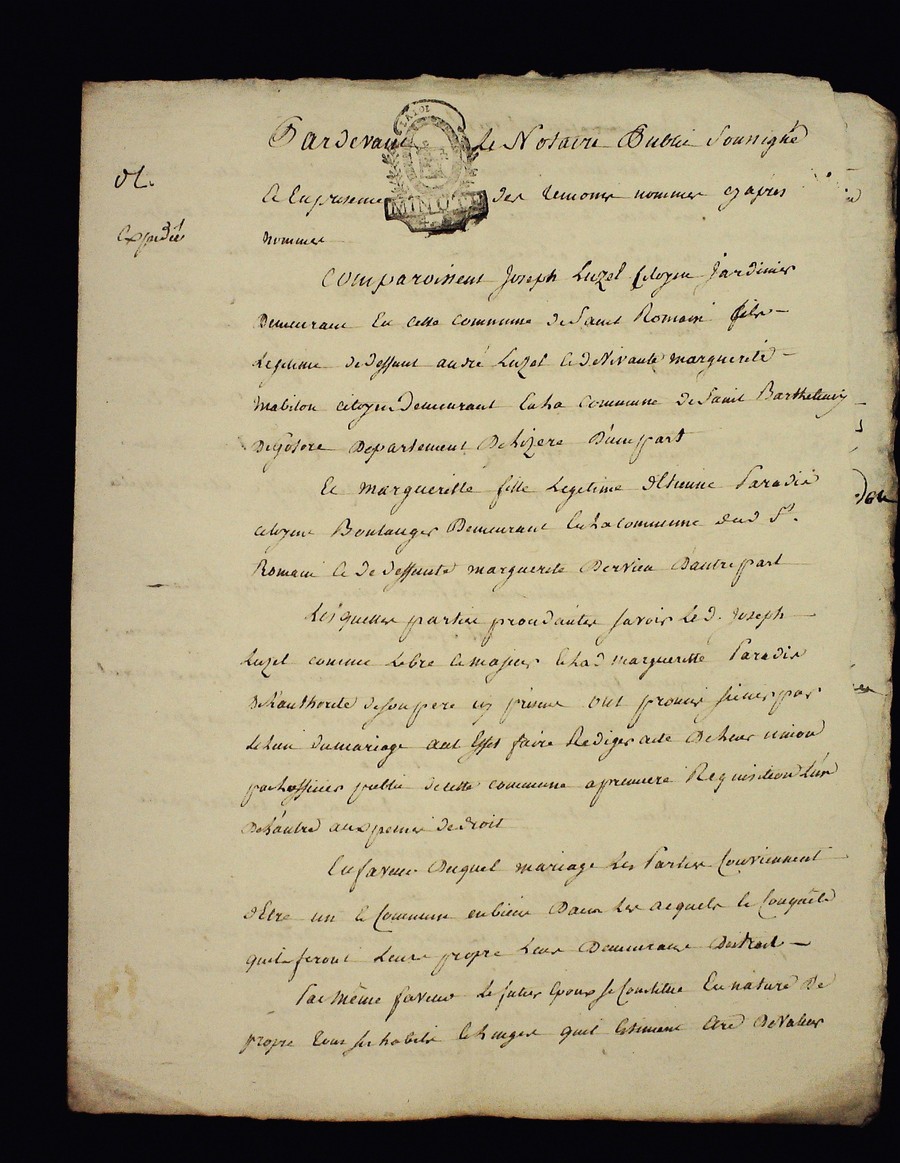 Pardevant Le Notaire Public Soussigné
LA LOI
MINUTE
Et en presence des temoins nommes cy apres
nommes
expedié
Comparoissent Joseph Luzel citoyen Jardinier
Demeurant En cette commune de Saint Romain fils
Legitime de deffunt andré Luzel et de vivante marguerite
Mabilon citoyen Demeurant En La commune de Saint Barthelemy
Departement De Lizere D'une part
Et margueritte fille Legitime d'Etienne Paradis
citoyen Boulanger Demeurant En La commune dud St.
Romain et de deffunte marguerite Dervieu D'autre part
Lesquelles parties procedantes savoir Led. Joseph
Luzel comme Libre et majeur et Lad margueritte Paradis
De L'authorité de son pere icy présent ont promis s'unir par
Le Lien du mariage a cet Effet faire Rediger acte De Leur union
par L'officier public de cette commune a premiere Requisition L'un
De L'autre aux peines de droit
En faveur Duquel mariage Les Parties Conviennent
d'Etre un et Commun en biens Dans Les acquets et Conquets
qu'ils feront Leurs propre Leur Demeurant
Par même faveur Le futur Epoux se Constitue En nature De
propre tous ses habits et Linges qu'il Estiment Etre De valeur